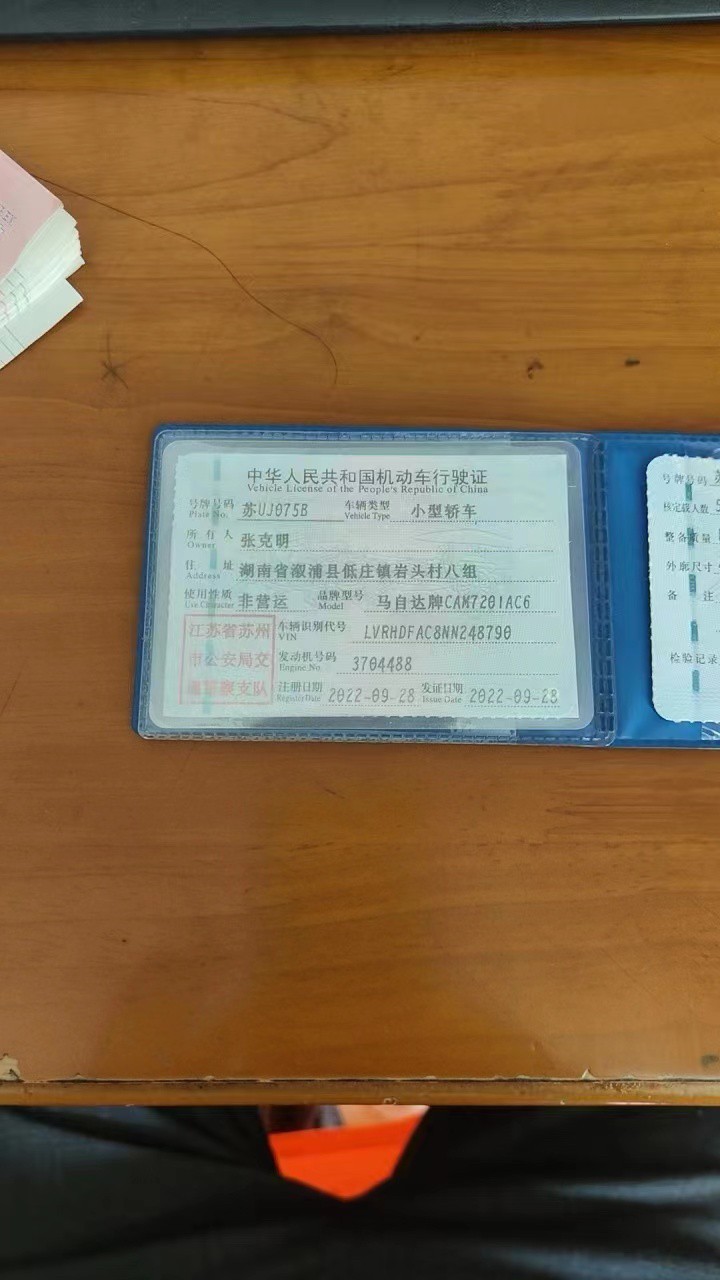 中华人民共和国机动车行驶证
Vehicle License of the People's Republic of China
号牌号码 苏UJ075B 车辆类型 小型轿车
Plate No. Vehicle Type
所有人 张克明
Owner
住址 湖南省溆浦县低庄镇岩头村八组
Address
使用性质 非营运 品牌型号 马自达牌CAM7201AC6
Use Character Model
江苏省苏州
市公安局交
支队
车辆识别代号 LVRHDFAC8NN248790
VIN
发动机号码 3704488
Engine No.
注册日期 2022-09-28 发证日期 2022-09-28
Register Date Issue Date
号牌号码
核定载人数
整备质量
外廓尺寸
备注
检验记录